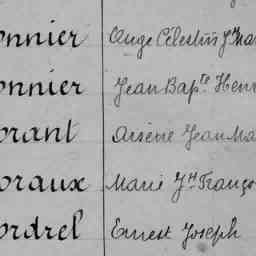 onnier Ange Célestin Jn Mar
onnier Jean Bapte Henr
orant Arsène Jean Ma
oraux Marie Jh Franço
ordrel Ernest Joseph